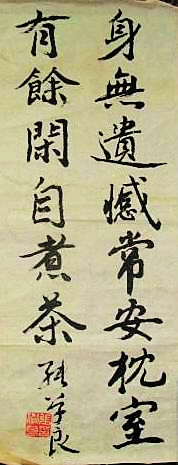 身無遺憾常安枕室
有餘閑自煮茶
張學良